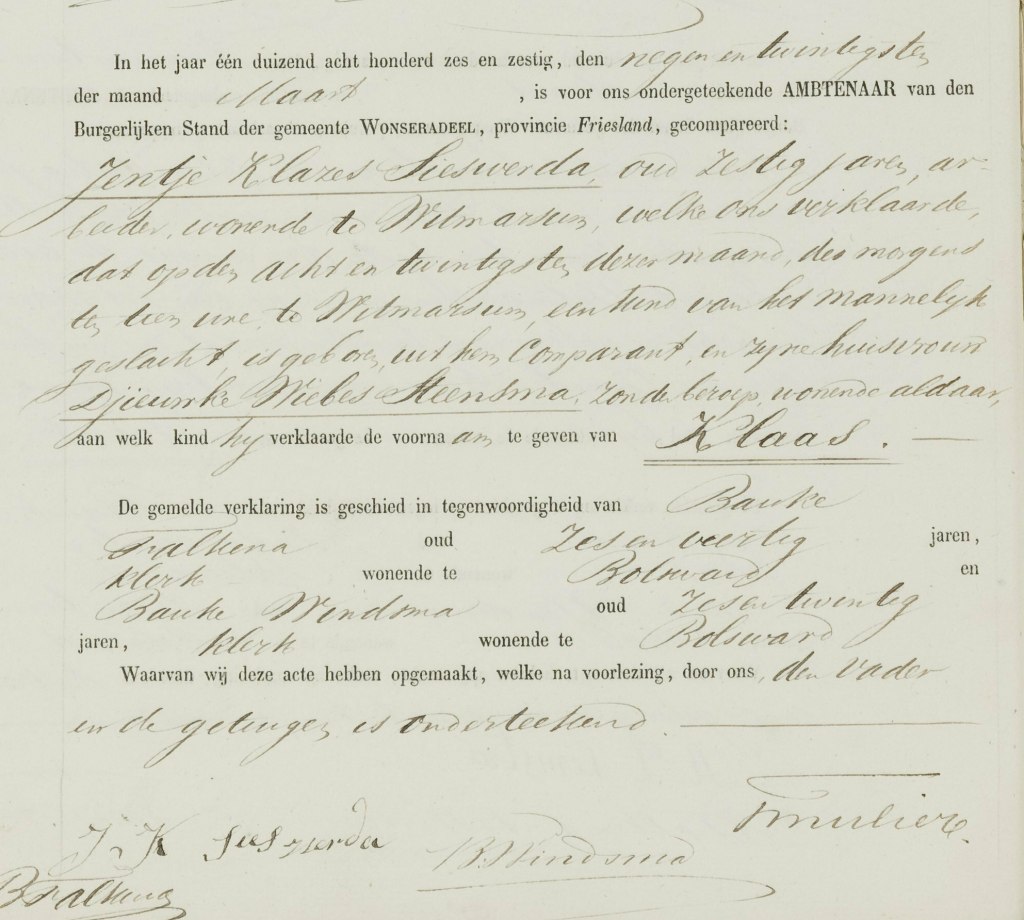 In het jaar één duizend acht honderd zes en zestig, den negen en twintigsten
der maand Maart , is voor ons ondergeteekende AMBTENAAR van den
Burgerlijken Stand der gemeente WONSERADEEL, provincie Friesland, gecompareerd:
Jentje Klazes Sieswerda, oud zestig jaren, ar-
beider, wonende te Witmarsum, welke ons verklaarde,
dat op den acht en twintigsten dezer maand, des morgens
ten tien ure, te Witmarsum, een kind van het mannelijk
geslacht, is geboren, uit hem Comparant, en zyne huisvrouw
Djieuwke Wiebes Steensma, zonder beroep, wonende aldaar,
aan welk kind hy verklaarde de voornaam te geven van Klaas.
De gemelde verklaring is geschied in tegenwoordigheid van Bauke
Falkena oud Zes en veertig jaren,
klerk wonende te Bolsward en
Bauke Windsma oud zes en twintig
jaren, klerk wonende te Bolsward
Waarvan wij deze acte hebben opgemaakt, welke na voorlezing, door ons, den vader
en de getuigen is onderteekend.
J. K Sieswerda B. Windsma
B Falkena